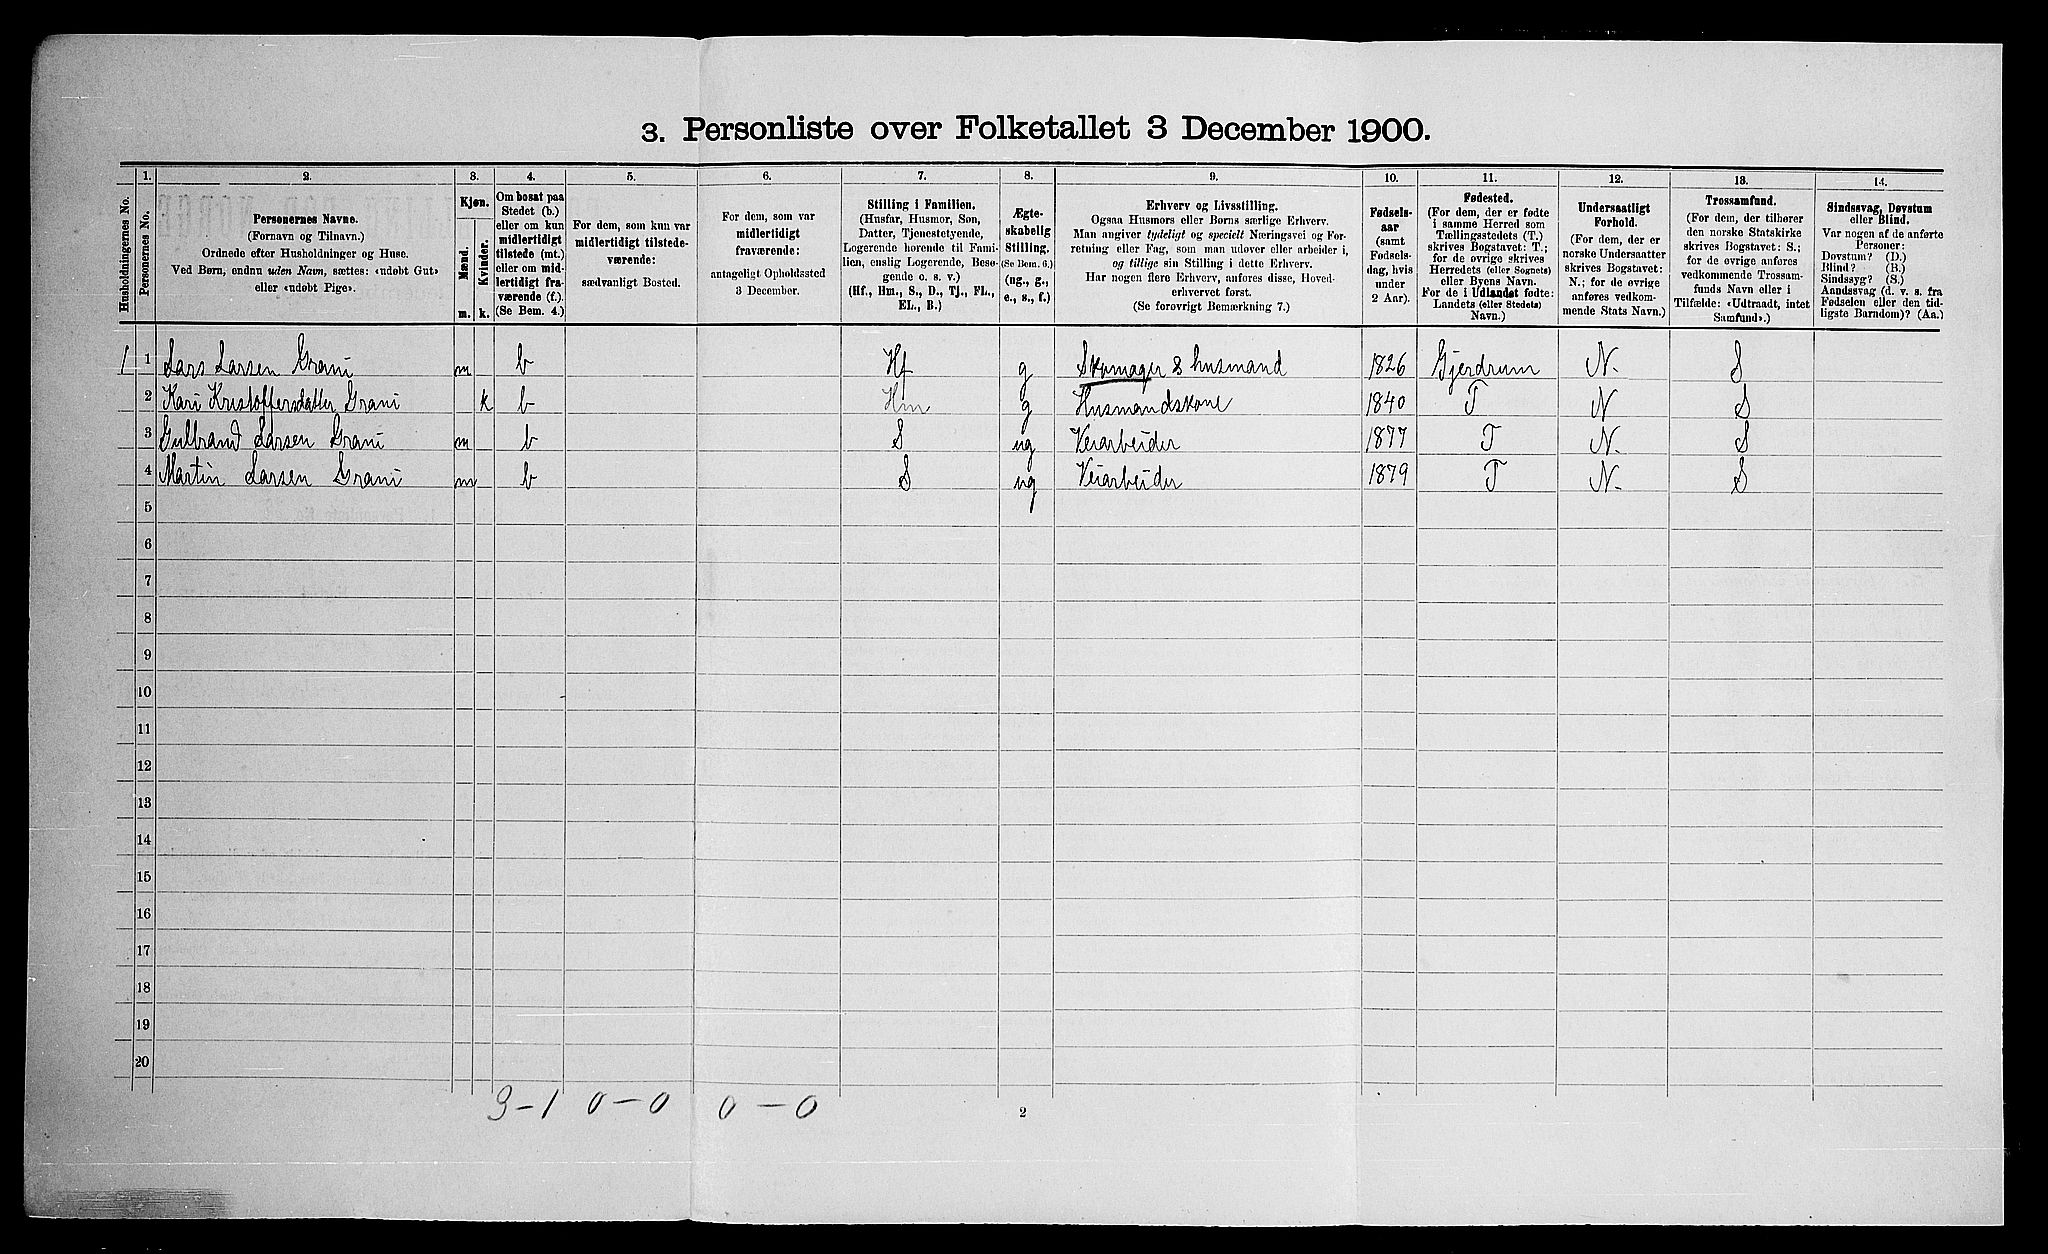 3. Personliste over Folketallet 3 December 1900.
1. 2. 3. 4. 5. 6. 7. 8. 9. 10. 11. 12. 13. 14.
Husholdningernes No.
Personernes No.
Personernes Navne.
(Fornavn og Tilnavn.)
Ordnede efter Husholdninger og Huse.
Ved Børn, endnu uden Navn, sættes: «udøbt Gut»
eller «udøbt Pige».
Kjøn.
Mænd.
Kvinder.
m. k.
Om bosat paa
Stedet (b.)
eller om kun
midlertidigt
tilstede (mt.)
eller om mid-
lertidigt fra-
værende (f.).
(Se Bem. 4.)
For dem, som kun var
midlertidigt tilstede-
værende:
sædvanligt Bosted.
For dem, som var
midlertidigt
fraværende:
antageligt Opholdssted
3 December.
Stilling i Familien.
(Husfar, Husmor, Søn,
Datter, Tjenestetyende,
Logerende hørende til Fami-
lien, enslig Logerende, Besø-
gende o. s. v.)
(Hf., Hm., S., D., Tj., FL.,
EL., B.)
Ægte-
skabelig
Stilling.
(Se Bem. 6.)
(ug., g.,
e., s., f.)
Erhverv og Livsstilling.
Ogsaa Husmors eller Børns særlige Erhverv.
Man angiver tydeligt og specielt Næringsvei og For-
retning eller Fag, som man udøver eller arbeider i,
og tillige sin Stilling i dette Erhverv.
Har nogen flere Erhverv, anføres disse, Hoved-
erhvervet først.
(Se forøvrigt Bemærkning 7.)
Fødsels-
aar
(samt
Fødsels-
dag, hvis
under
2 Aar).
Fødested.
(For dem, der er fødte
i samme Herred som
Tællingsstedets (T.)
skrives Bogstavet: T.;
for de øvrige skrives
Herredets (eller Sognets)
eller Byens Navn.
For de i Udlandet fødte:
Landets (eller Stedets)
Navn.)
Undersaatligt
Forhold.
(For dem, der er
norske Undersaatter
skrives Bogstavet:
N.; for de øvrige
anføres vedkom-
mende Stats Navn.)
Trossamfund.
(For dem, der tilhører
den norske Statskirke
skrives Bogstavet: S.;
for de øvrige anføres
vedkommende Trossam-
funds Navn eller i
Tilfælde: «Udtraadt, intet
Samfund».)
Sindssvag, Døvstum
eller Blind.
Var nogen af de anførte
Personer:
Døvstum? (D.)
Blind? (B.)
Sindssyg? (S.)
Aandssvag (d. v. s. fra
Fødselen eller den tid-
ligste Barndom)? (Aa.)
1 1 Lars Larsen Grani m b Hf g Skomager & husmand 1826 Gjerdrum N. S
2 Kari Kristoffersdatter Grani k b Hm g Husmandskone 1840 T N S
3 Gulbrand Larsen Grani m b S ug Veiarbeider 1877 T N. S
4 Martin Larsen Grani m b S ug Veiarbeider 1879 T N. S
5
6
7
8
9
10
11
12
13
14
15
16
17
18
19
20
3-1 0-0 0-0
2